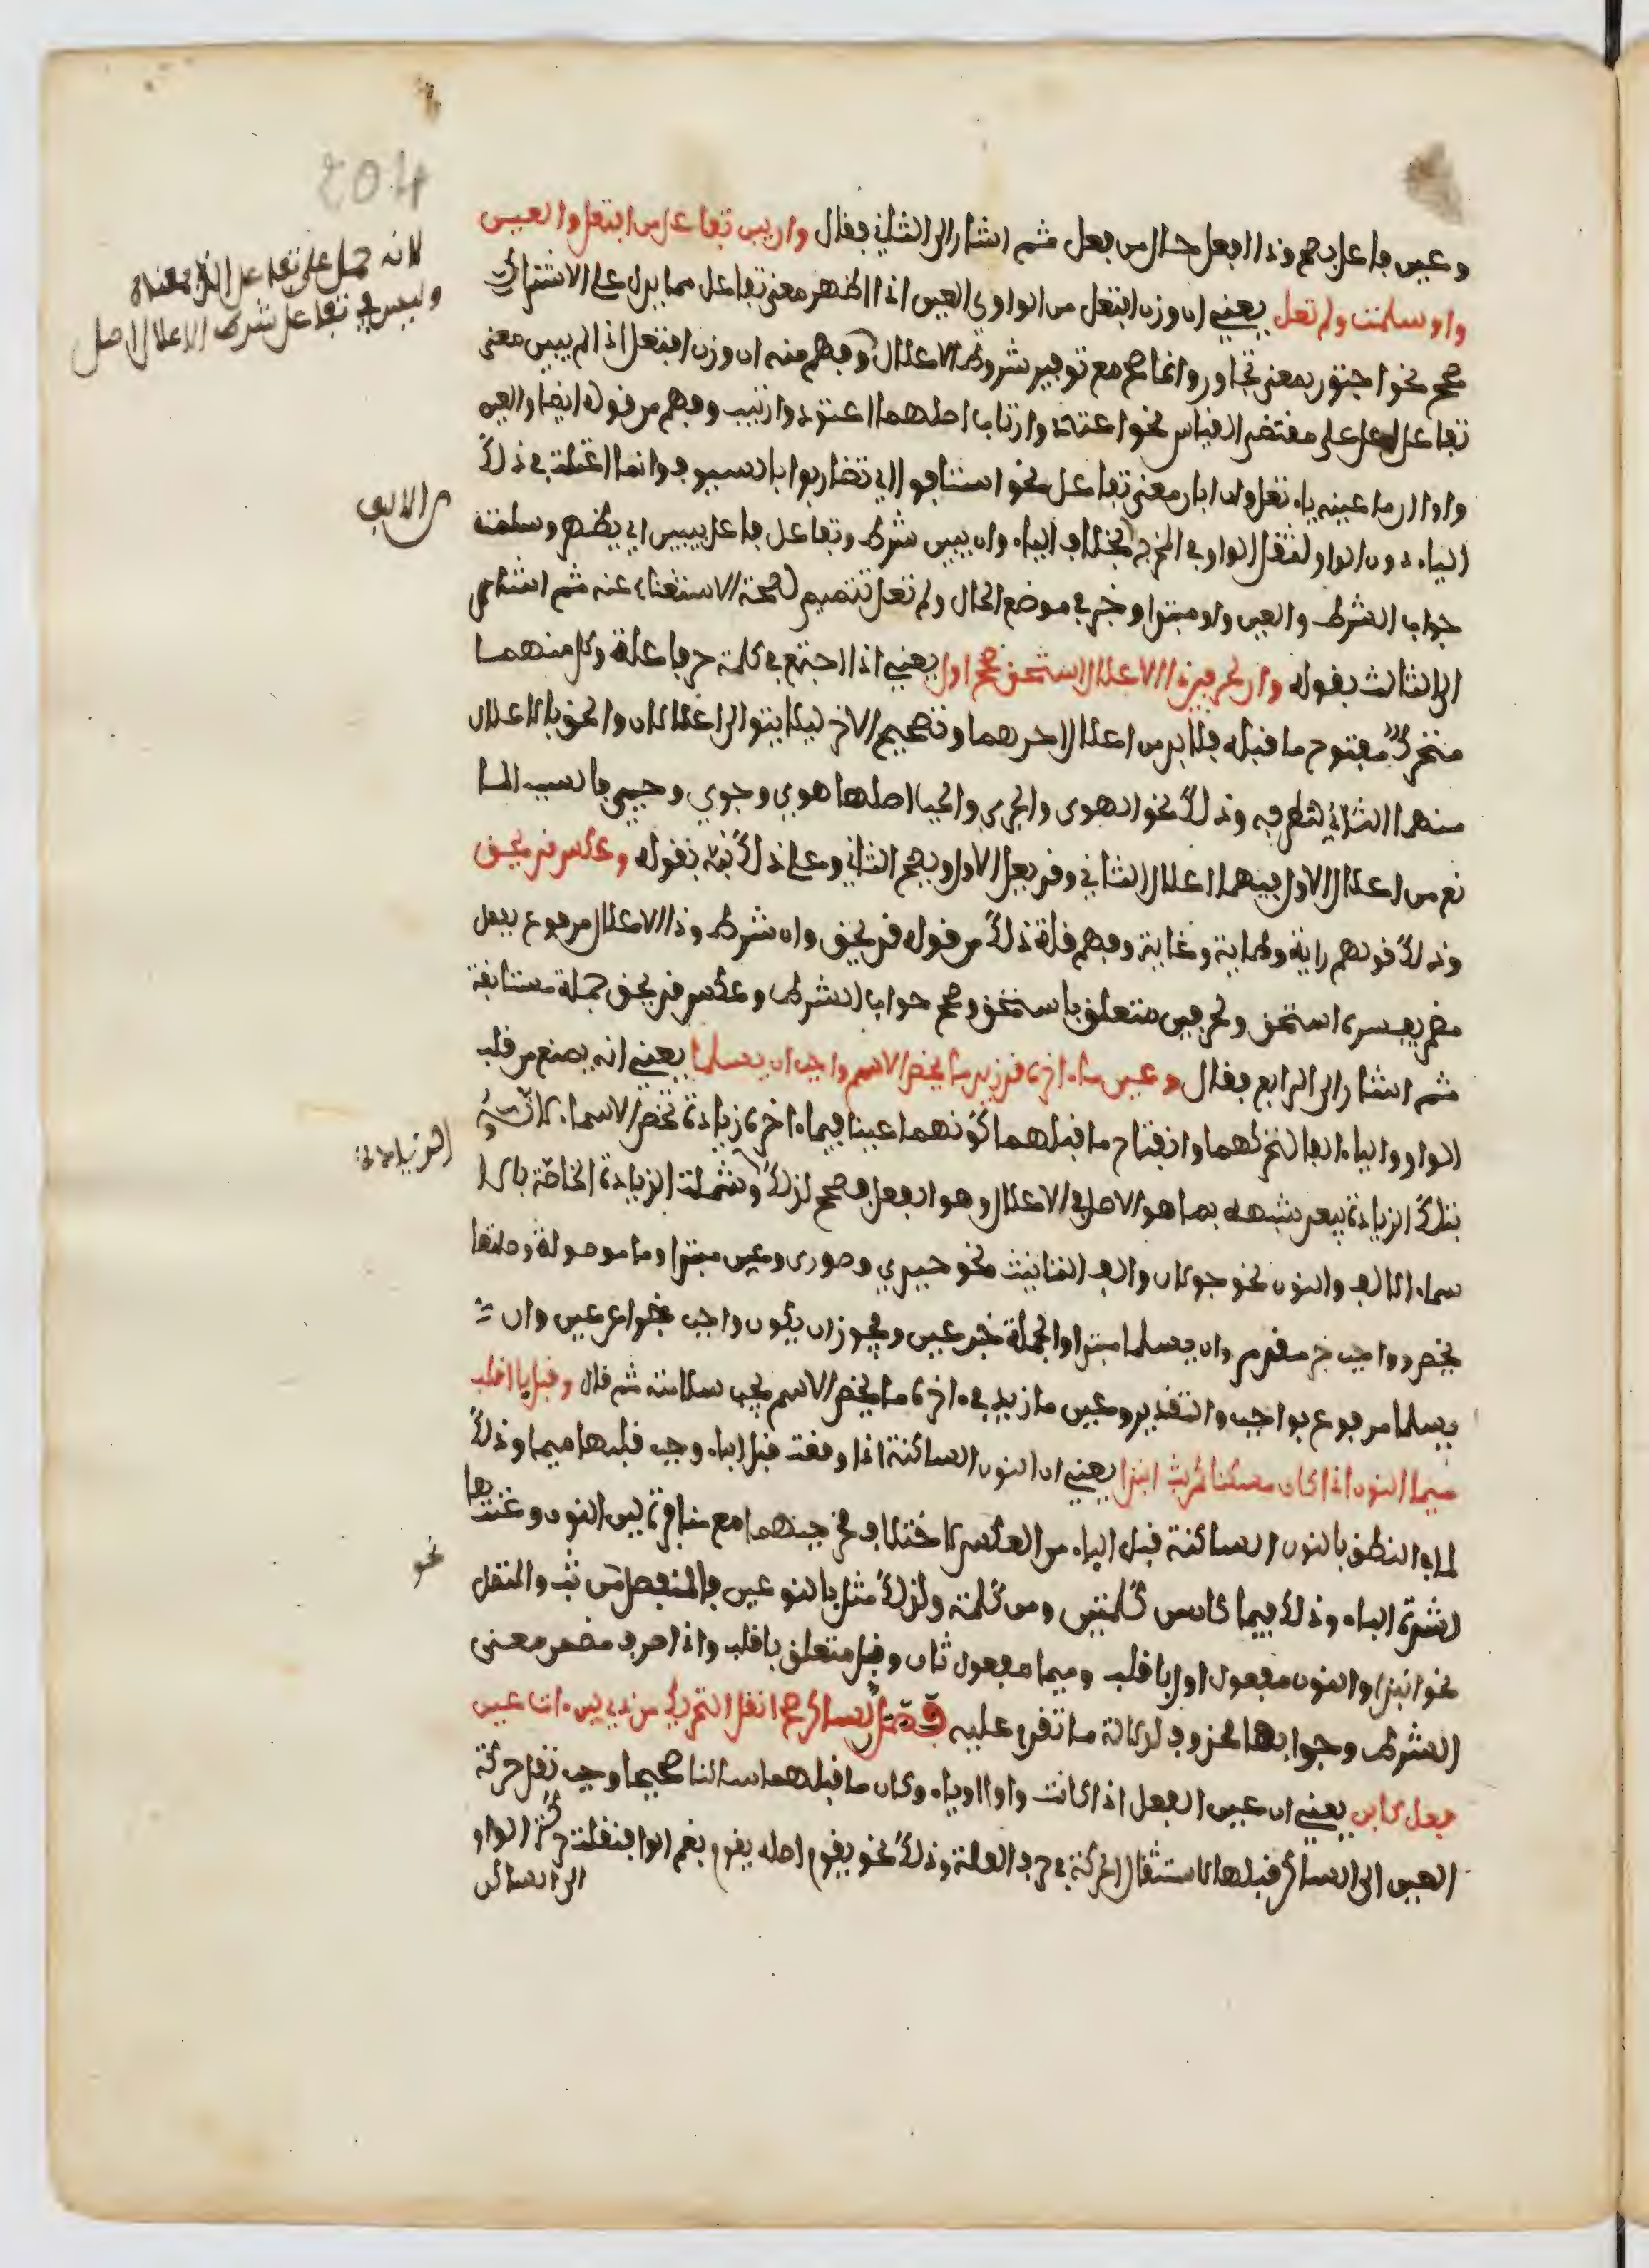 وعين فاعل بصح وذا افعل حال من فعل ثم اشار الى الثاني فقال وان يبن تفاعل من افتعل والعين
واو سلمت ولم تعل يعني ان وزن افتعل من الواوي العين اذا اظهر معنى تفاعل مما يدل على الاشتراك
صح نحو اجتور بمعنى تجاور وانما صح مع توفير شروط الاعلال وفهم منه ان وزن افتعل اذا لم يبين معنى
تفاعل اعل على مقتضى القياس نحو اعتاد وارتاب اصلهما اعتود وارتيب وفهم من قوله ايضا والعين
واو ان ما عينه ياء تعل وان ابان معنى تفاعل نحو استافوا اي تضاربوا بالسيوف وانما اعتلت في ذلك
الياء دون الواو لثقل الواو في المخرج بخلاف الياء وان يبين شرط وتفاعل فاعل يبين اي يظهر وسلمت
جواب الشرط والعين واو مبتدا وخبر في موضع الحال ولم تعل تتميم لصحة الاستغناء عنه ثم اشار
الى الثالث بقوله وان لحرفين ذا الاعلال استحق صحح اول يعني اذا اجتمع في كلمة حرفا علة وكل منهما
متحرك مفتوح ما قبله فلا بد من اعلال احدهما وتصحيح الاخر ليلا يتوالى اعلالان والحق بالاعلال
منهما الثاني لتطرفه وذلك نحو الهوى والجوى والحيا اصلها هوي وجوي وحيي فالسبب الما
نع من اعلال الاول فيهما اعلال الثاني وقد يعل الاول ويصح الثاني وعلى ذلك نبه بقوله وعكس قد يحق
وذلك قولهم راية وطاية وغاية وفهم قلة ذلك من قوله قد يحق وان شرط وذا الاعلال مرفوع بفعل
مضمر يفسره استحق ولحرفين متعلق باستحق وصحح جواب الشرط وعكس قد يحق جملة مستانفة
ثم اشار الى الرابع فقال وعين ما اخره قد زيد ما يخص الاسم واجب ان يسلما يعني انه يمنع من قلب
الواو والياء الفا لتحركهما وانفتاح ما قبلهما كونهما عينا فيما اخره زيادة تخص الاسماء لانه
بتلك الزيادة يبعد شبهه بما هو الاصل في الاعلال وهو الفعل فصحح لذلك وشملت الزيادة الخاصة بالا
سماء الالف والنون نحو جولان والف التانيث نحو حيدى وصورى وعين مبتدا وما موصولة وصلتها
يخص وواجب خبر مقدم وان يسلما مبتدا والجملة خبر عين ويجوز ان يكون واجب خبرا عن عين وان
يسلما مرفوع بواجب والتقدير وعين ما زيد في اخره ما يخص الاسم يجب سلامته ثم قال وقبل با اقلب
ميما النون اذا كان مسكنا كمن بت انبذا يعني ان النون الساكنة اذا وقعت قبل الباء وجب قلبها ميما وذلك
لما في النطق بالنون الساكنة قبل الباء من العسر لاختلاف مخرجيهما مع منافرة لين النون وغنتها
لشدة الباء وذلك فيما كان من كلمتين ومن كلمة ولذلك مثل بالنوعين فالمنفصل من بت والمتصل
نحو انبذا والنون مفعول اول باقلب وميما مفعول ثان وقبل متعلق باقلب واذا ظرف مضمن معنى
الشرط وجوابها محذوف لدلالة ما تقدم عليه فصل لساكن صح انقل التحريك من ذي لين ءات عين
فعل كابن يعني ان عين الفعل اذا كانت واوا او ياء وكان ما قبلهما ساكنا صحيحا وجب نقل حركة
العين الى الساكن قبلها لاستثقال الحركة في حرف العلة وذلك نحو يقوم اصله يقوم بضم الواو فنقلت حركة الواو
الى الساكن
لانه حمل على تفاعل الذي بمعناه
وليس في تفاعل شرط الاعلال الاصل
من الالف
نحو